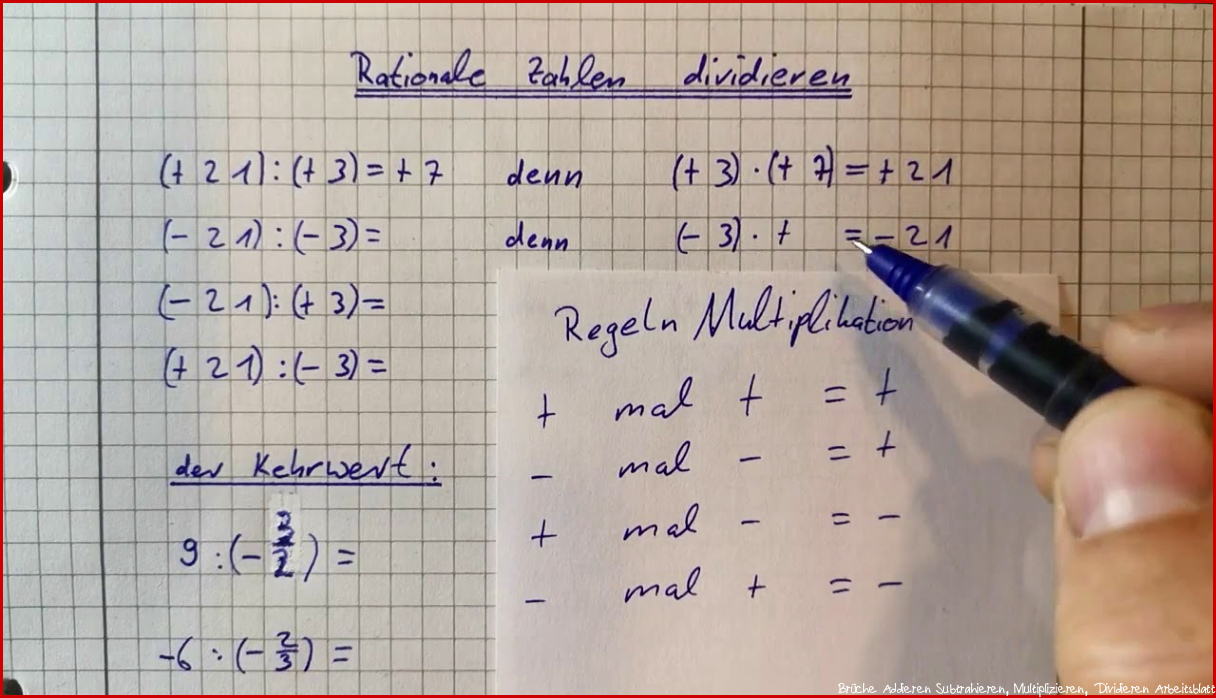 Rationale Zahlen dividieren
(+ 21):(+ 3)= + 7 denn (+ 3)·(+ 7)= + 21
(- 21):(- 3)= denn (- 3)· + = - 21
(- 21):(+ 3)=
(+ 21):(- 3)=
Regeln Multiplikation
+ mal + = +
- mal - = +
+ mal - = -
- mal + = -
der Kehrwert:
9 :(- ) =
-6 :(- 2/3) =
Brüche Addieren Subtrahieren, Multiplizieren, Dividieren Arbeitsblatt